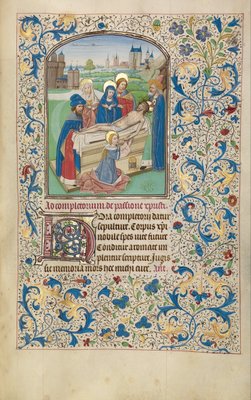 Ad completorium de passione xpristi
Hora completorij datur
sepulture. Corpus xpi
nobile spes vite future
Conditur aromate im
plentur scripture. Jugis
sit memoria mors hec michi cure.